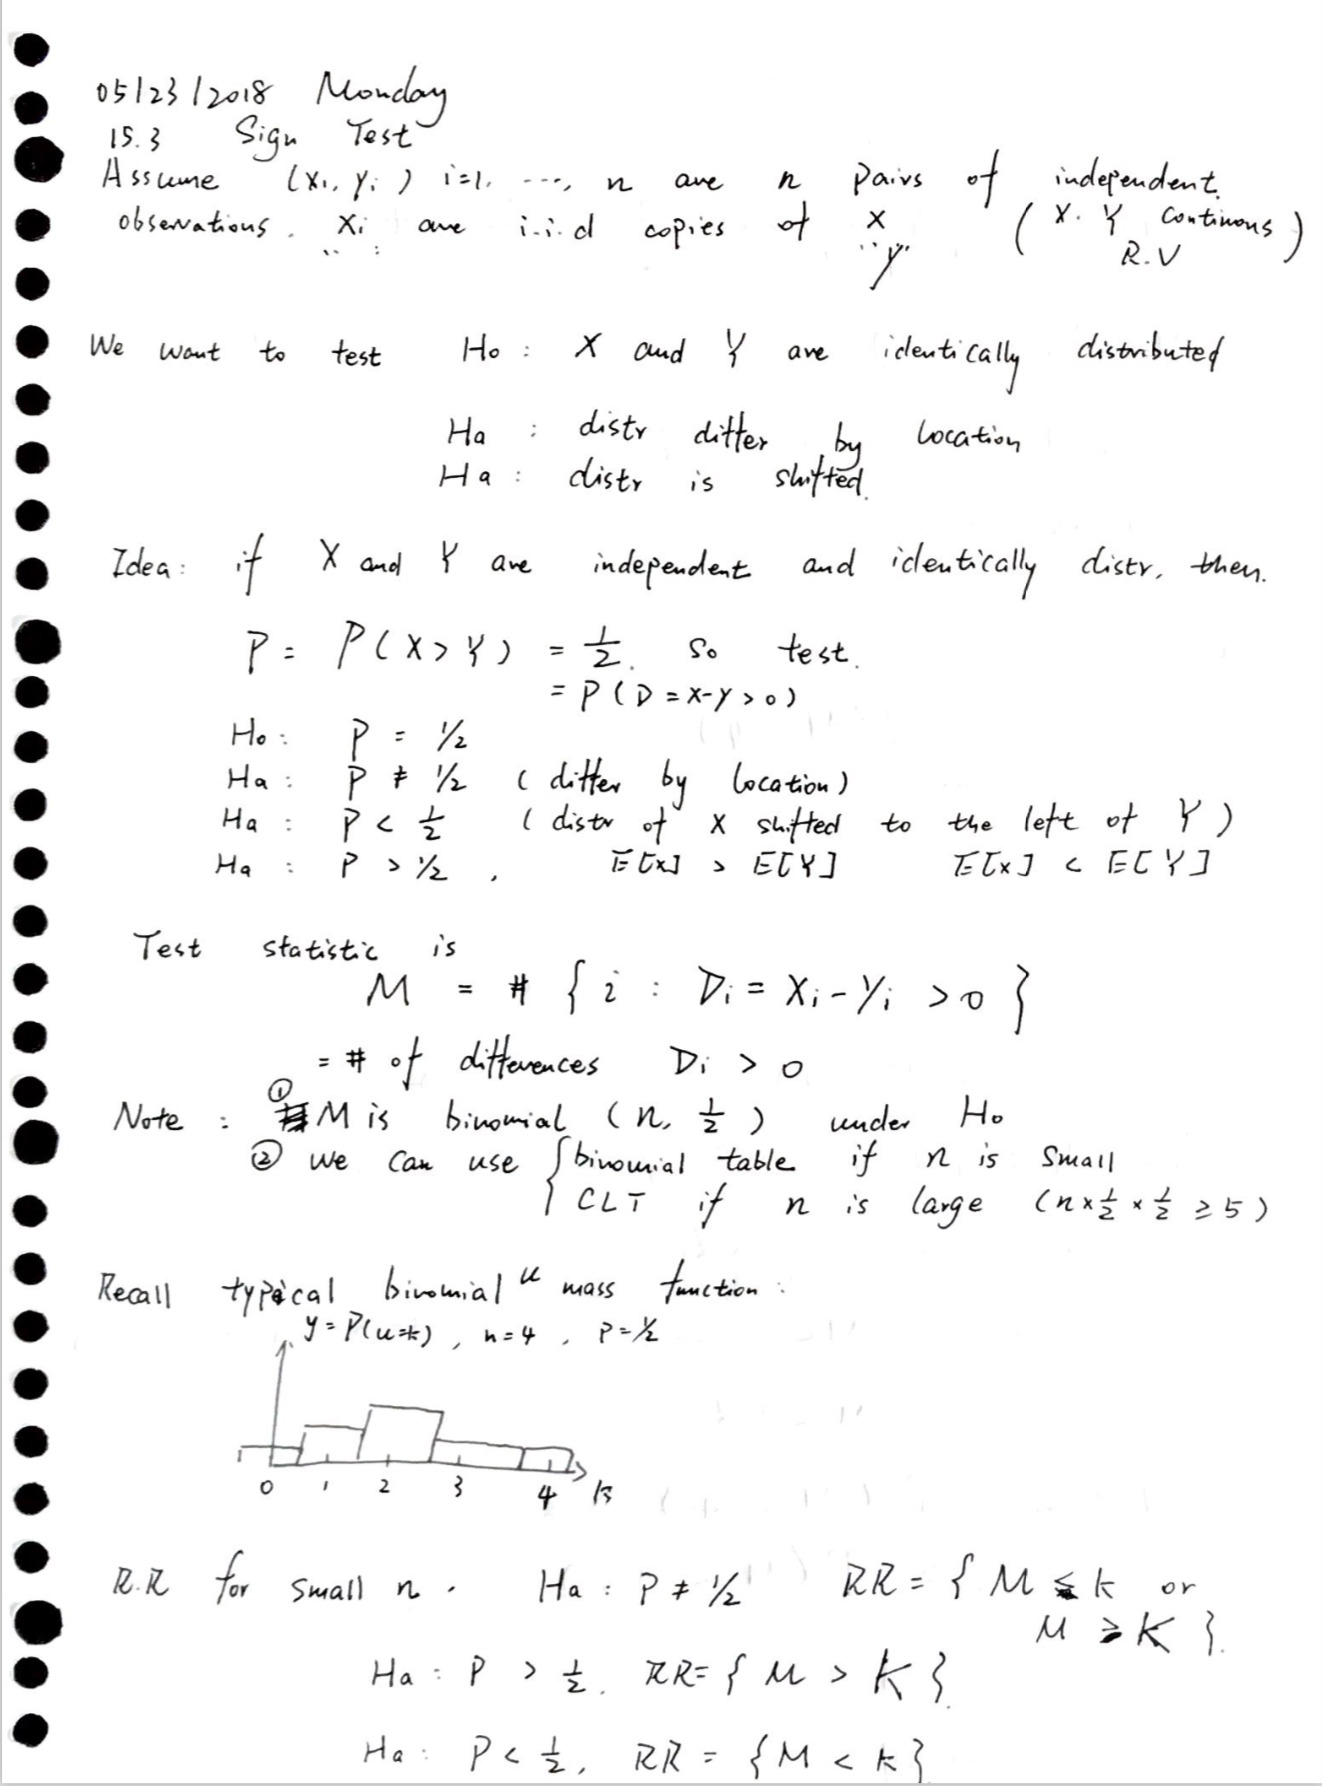 05/23/2018 Monday
15.3 Sign Test
Assume (Xi, Yi) i=1, ..., n are n pairs of independent
observations. Xi are i.i.d copies of X (X. Y Continous
.. : "Y" R.V)
We want to test Ho : X and Y are identically distributed
Ha : distr differ by location
Ha : distr is shifted.
Idea: if X and Y are independent and identically distr, then.
P = P(X > Y) = 1/2. So test.
= P(D = X-Y > 0)
Ho: P = 1/2
Ha: P ≠ 1/2 (differ by location)
Ha : P < 1/2 (distr of X shifted to the left of Y)
Ha : P > 1/2, E[X] > E[Y] E[X] < E[Y]
Test statistic is
M = # { i : Di = Xi - Yi > 0 }
= # of differences Di > 0
Note : ① M is binomial (n, 1/2) under Ho
② We can use { binomial table if n is small
CLT if n is large (n×1/2×1/2 ≥ 5)
Recall typical binomial u mass function :
y = P(u=k), n=4, P=1/2
0 1 2 3 4 k
R.R for small n. Ha : P ≠ 1/2 RR = { M ≤ k or
M ≥ K }.
Ha : P > 1/2. RR = { M > K }.
Ha : P < 1/2, RR = {M < k}